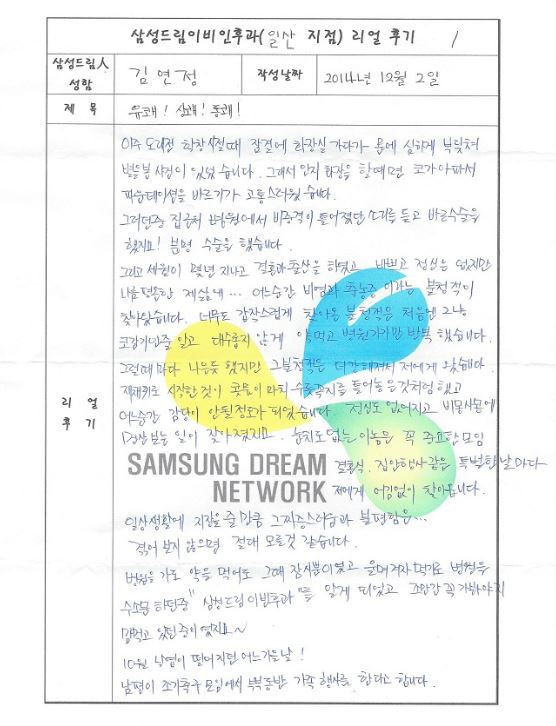 삼성드림이비인후과(일산 지점) 리얼 후기 1
삼성드림人 성함 김연정 작성날짜 2014년 12월 2일
제 목 유쾌! 상쾌! 통쾌!
리 얼 후 기
아주 오래전 학창시절때 잠결에 화장실 가다가 문에 심하게 부딪쳐
사건이 있었습니다. 그래서 인지 화장을 할때면 코가 아파서
파운데이션을 바르기가 고통스러웠습니다.
그러던중 집근처 병원에서 비중격이 틀어졌단 소리를 듣고 바른수술을
했지요! 분명 수술을 했습니다.
그리고 세월이 몇년 지나고 결혼과 출산을 하였고 바쁘고 정신은 없지만
나름 평온한 제 삶에... 어느순간 비염과 축농증 이라는 불청객이
찾아왔습니다. 너무도 갑작스럽게 찾아온 불청객은 처음엔 그냥
코감기인줄 알고 대수롭지 않게 약먹고 병원가기만 반복 했습니다.
그럴때마다 나은듯 했지만 그불청객은 더 강해져서 저에게 왔습니다.
재채기로 시작한것이 콧물이 마치 수도꼭지를 틀어놓은것처럼 했고
어느순간 감당이 안될정도가 되었습니다. 정신도 없어지고 비몽사몽에
일이 잦아졌지요. 눈치도 없는 이놈은 꼭 중요한 모임
결혼식. 집안행사 같은 특별한 날마다
SAMSUNG DREAM NETWORK
저에게 어김없이 찾아옵니다.
일상생활에 지장을 줄만큼 그 짜증스러움과 불편함은...
겪어 보지 않으면 절대 모를것 같습니다.
병원을 가도 약을 먹어도 그때 잠시뿐이였고 울며 겨자 먹기로 병원을
수소문 하던중 "삼성드림이비인후과"를 알게 되었고 조만간 꼭 가봐야지
맘먹고 있던 중이였지요~
10월 낙엽이 떨어지던 어느가을날!
남편이 조기축구 모임에서 부부동반 가족 행사를 한다고 합니다.